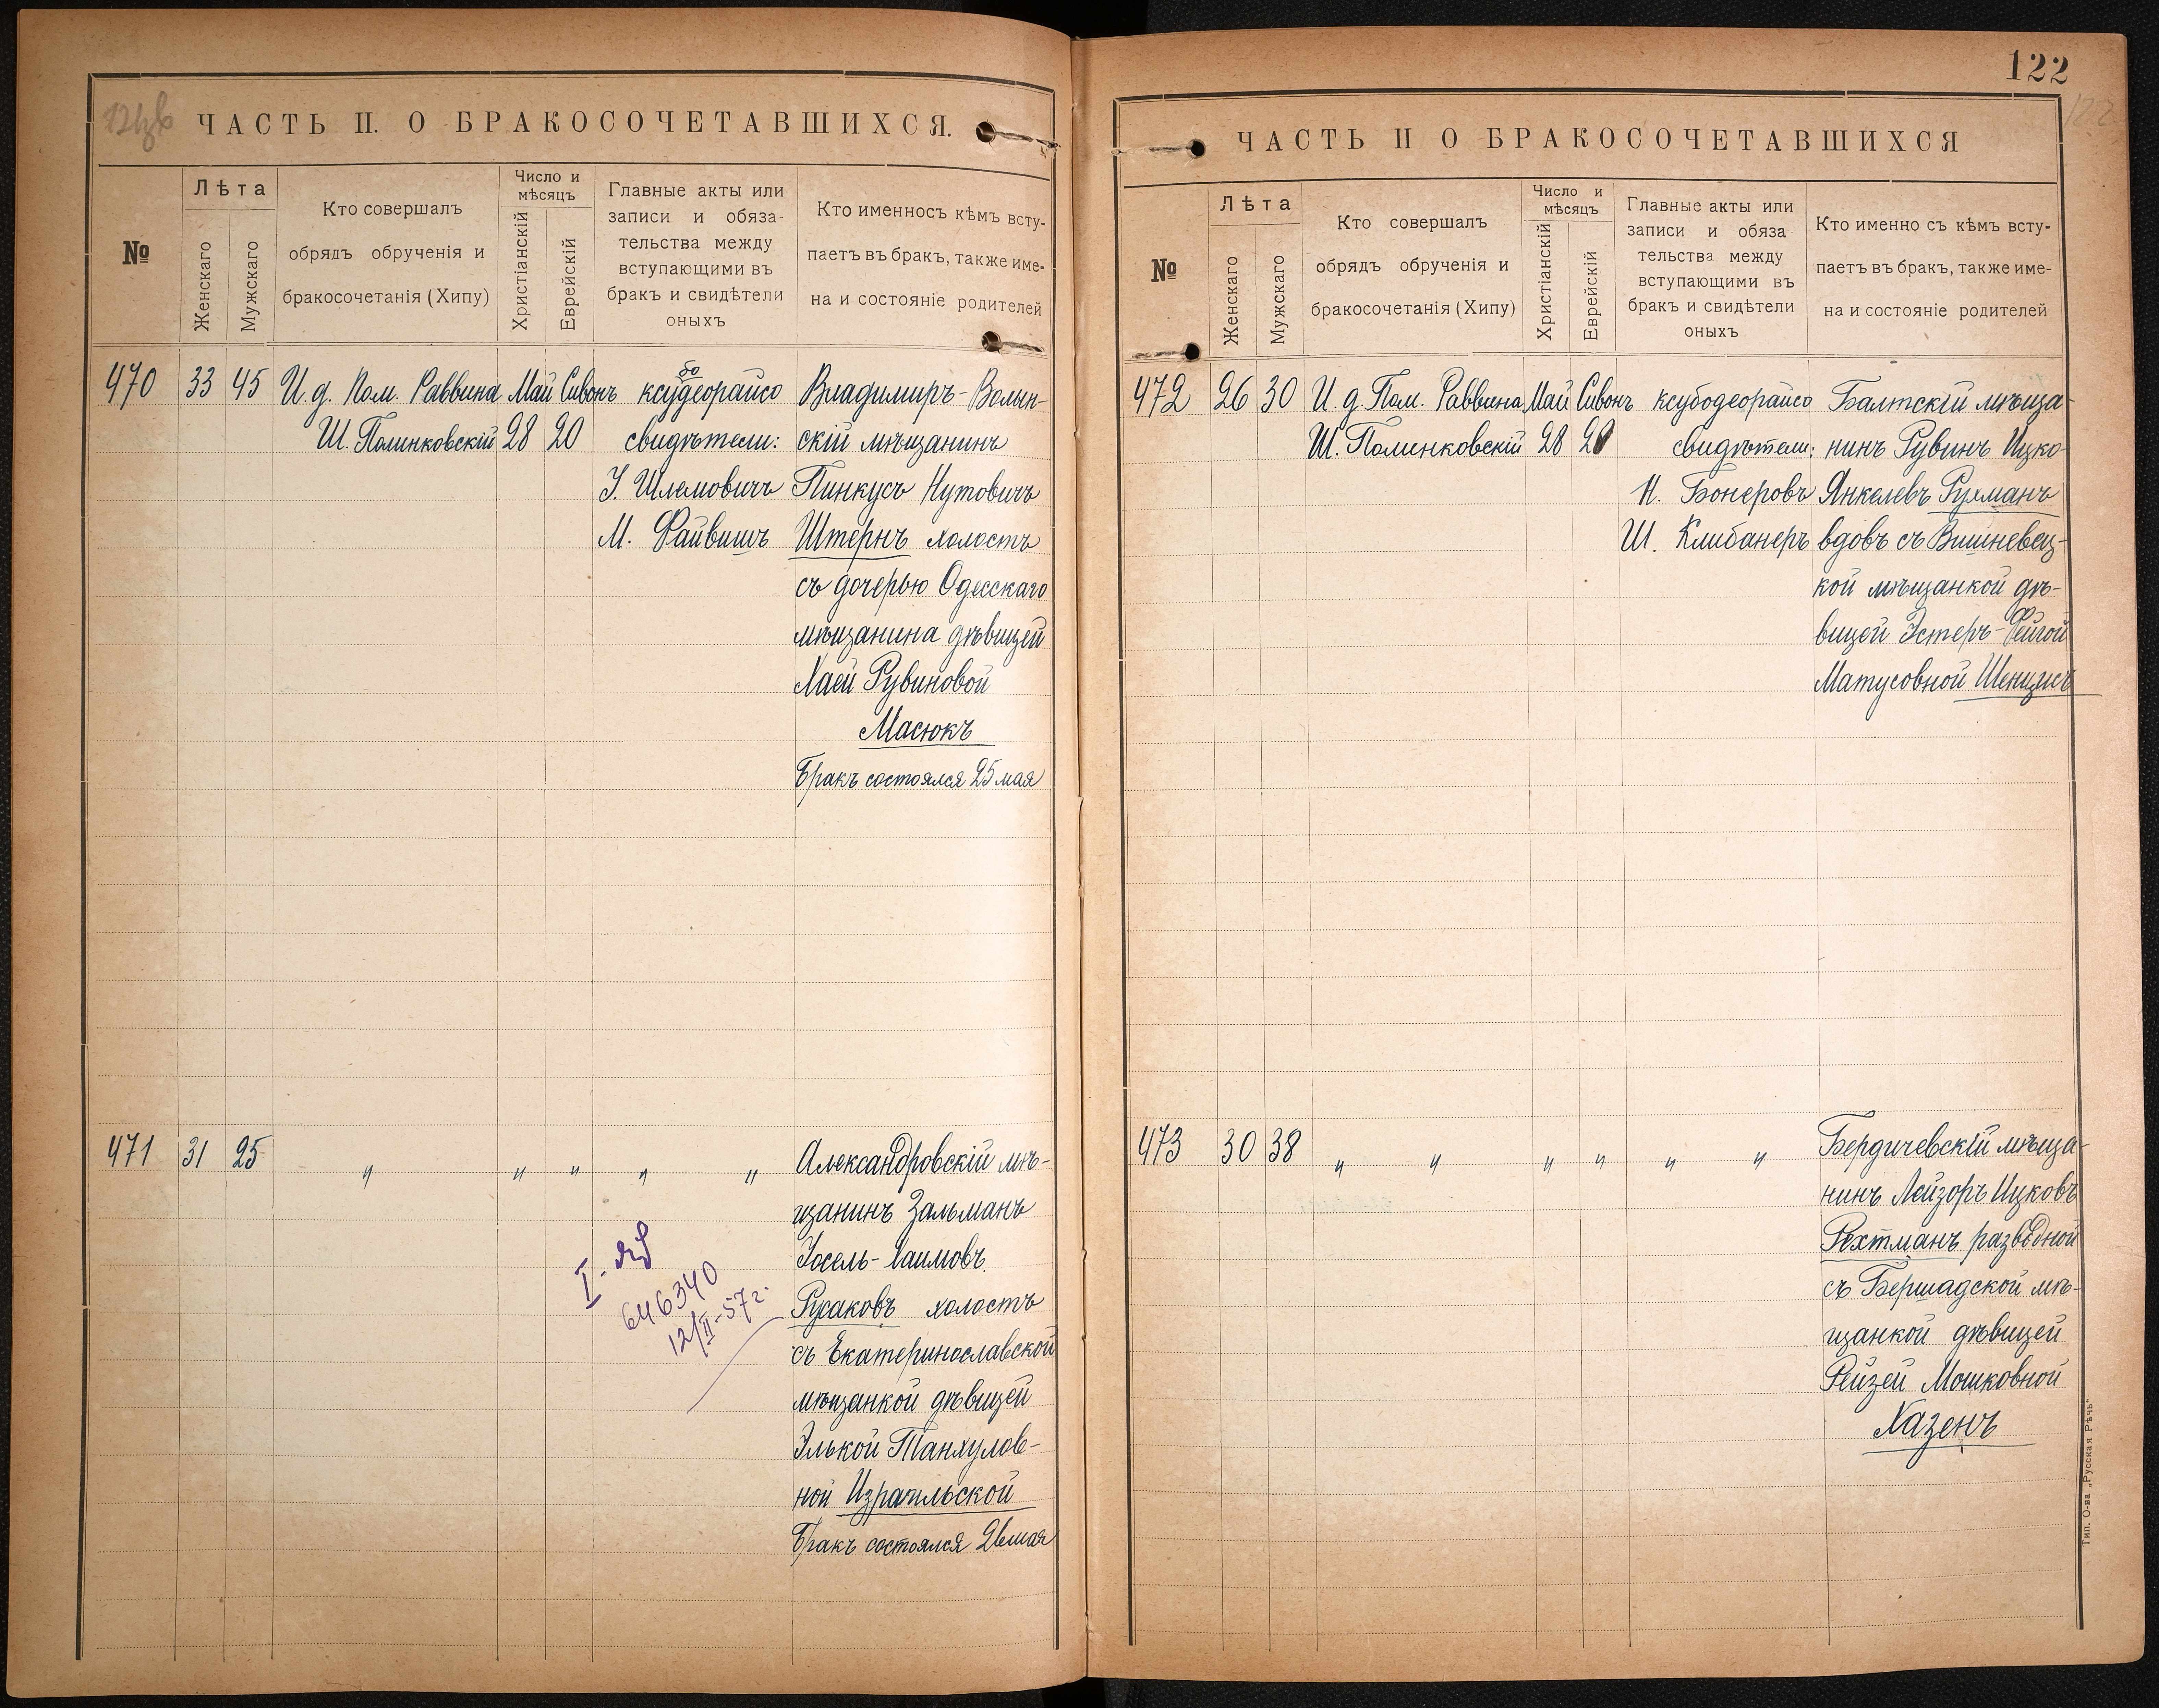 ЧАСТЬ II. О БРАКОСОЧЕТАВШИХСЯ.
№
Лѣта
Женскаго
Мужскаго
Кто совершалъ
обрядъ обрученія и
бракосочетанія (Хипу)
Число и
мѣсяцъ
Христіанскій
Еврейскій
Главные акты или
записи и обяза-
тельства между
вступающими въ
бракъ и свидѣтели
оныхъ
Кто именносъ кѣмъ всту-
паетъ въ бракъ, также име-
на и состояніе родителей
470 33 45 И. д. Пом. Раввина Май Сивонъ ксубодеорайсо Владимиръ-Волын-
Ш. Полинковскій 28 20 свидѣтели: скій мѣщанинъ
У. Шлемовичъ Пинкусъ Нутовичъ
М. Файвишъ Штернъ холостъ
съ дочерью Одесскаго
мѣщанина дѣвицей
Хаей Рувиновой
Масюкъ
Бракъ состоялся 25 мая
471 31 25 " " " " " Александровскій мѣ-
щанинъ Зальманъ
Іосель-Хаимовъ
Русаковъ холостъ
съ Екатеринославской
мѣщанкой дѣвицей
Элькой Танхумов-
ной Израильской
Бракъ состоялся 26 мая
646340
12/II-57г.
122
ЧАСТЬ II О БРАКОСОЧЕТАВШИХСЯ
№
Лѣта
Женскаго
Мужскаго
Кто совершалъ
обрядъ обрученія и
бракосочетанія (Хипу)
Число и
мѣсяцъ
Христіанскій
Еврейскій
Главные акты или
записи и обяза
тельства между
вступающими въ
бракъ и свидѣтели
оныхъ
Кто именно съ кѣмъ всту-
паетъ въ бракъ, также име-
на и состояніе родителей
472 26 30 И. д. Пом. Раввина Май Сивонъ ксубодеорайсо Балтскій мѣща-
Ш. Полинковскій 28 20 свидѣтели: нинъ Рувинъ Ицко-
Н. Бонеровъ Янкелевъ Рухманъ
Ш. Клибанеръ вдовъ съ Вишневец-
кой мѣщанкой дѣ-
вицей Эстеръ-Фейгой
Матусовной
473 30 38 " " " " " " Бердичевскій мѣща-
нинъ Лейзоръ Ицковъ
Рехтманъ разводной
съ Бершадской мѣ-
щанкой дѣвицей
Рейзей Мошковной
Хазенъ
Тип. О-ва „Русская Рѣчь"